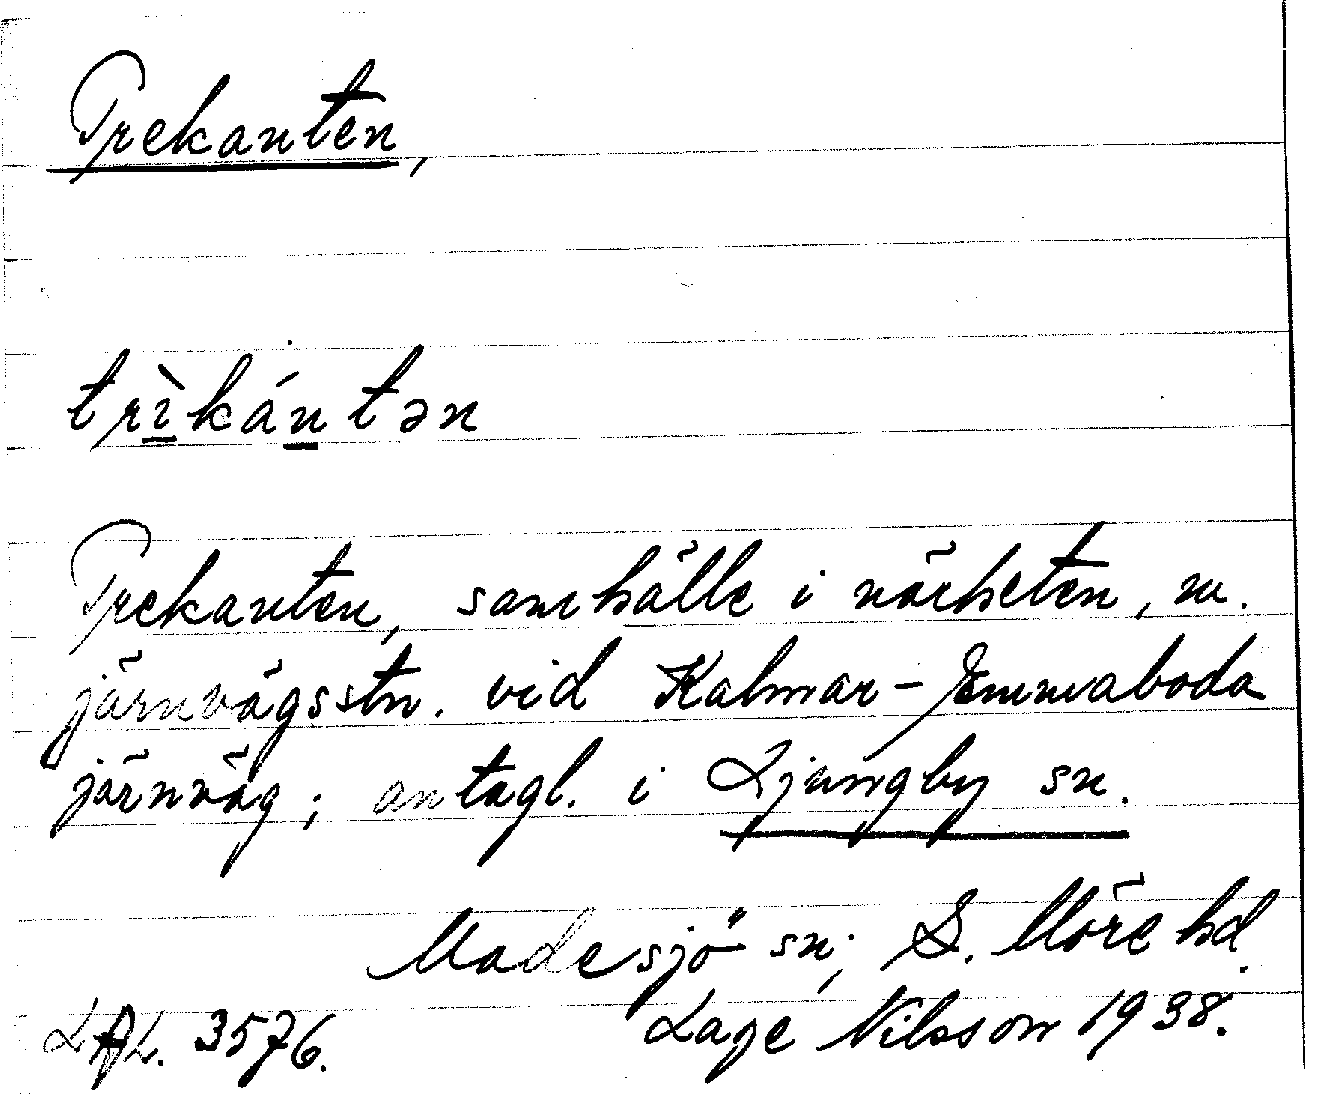 Trekanten,
trìkántən
Trekanten, samhälle i närheten, m.
järnvägsstn. vid Kalmar - Emmaboda
järnväg; antagl. i Ljungby sn.
Madesjö sn; S. Möre hd.
LAL. 3576. Lage Nilsson 1938.